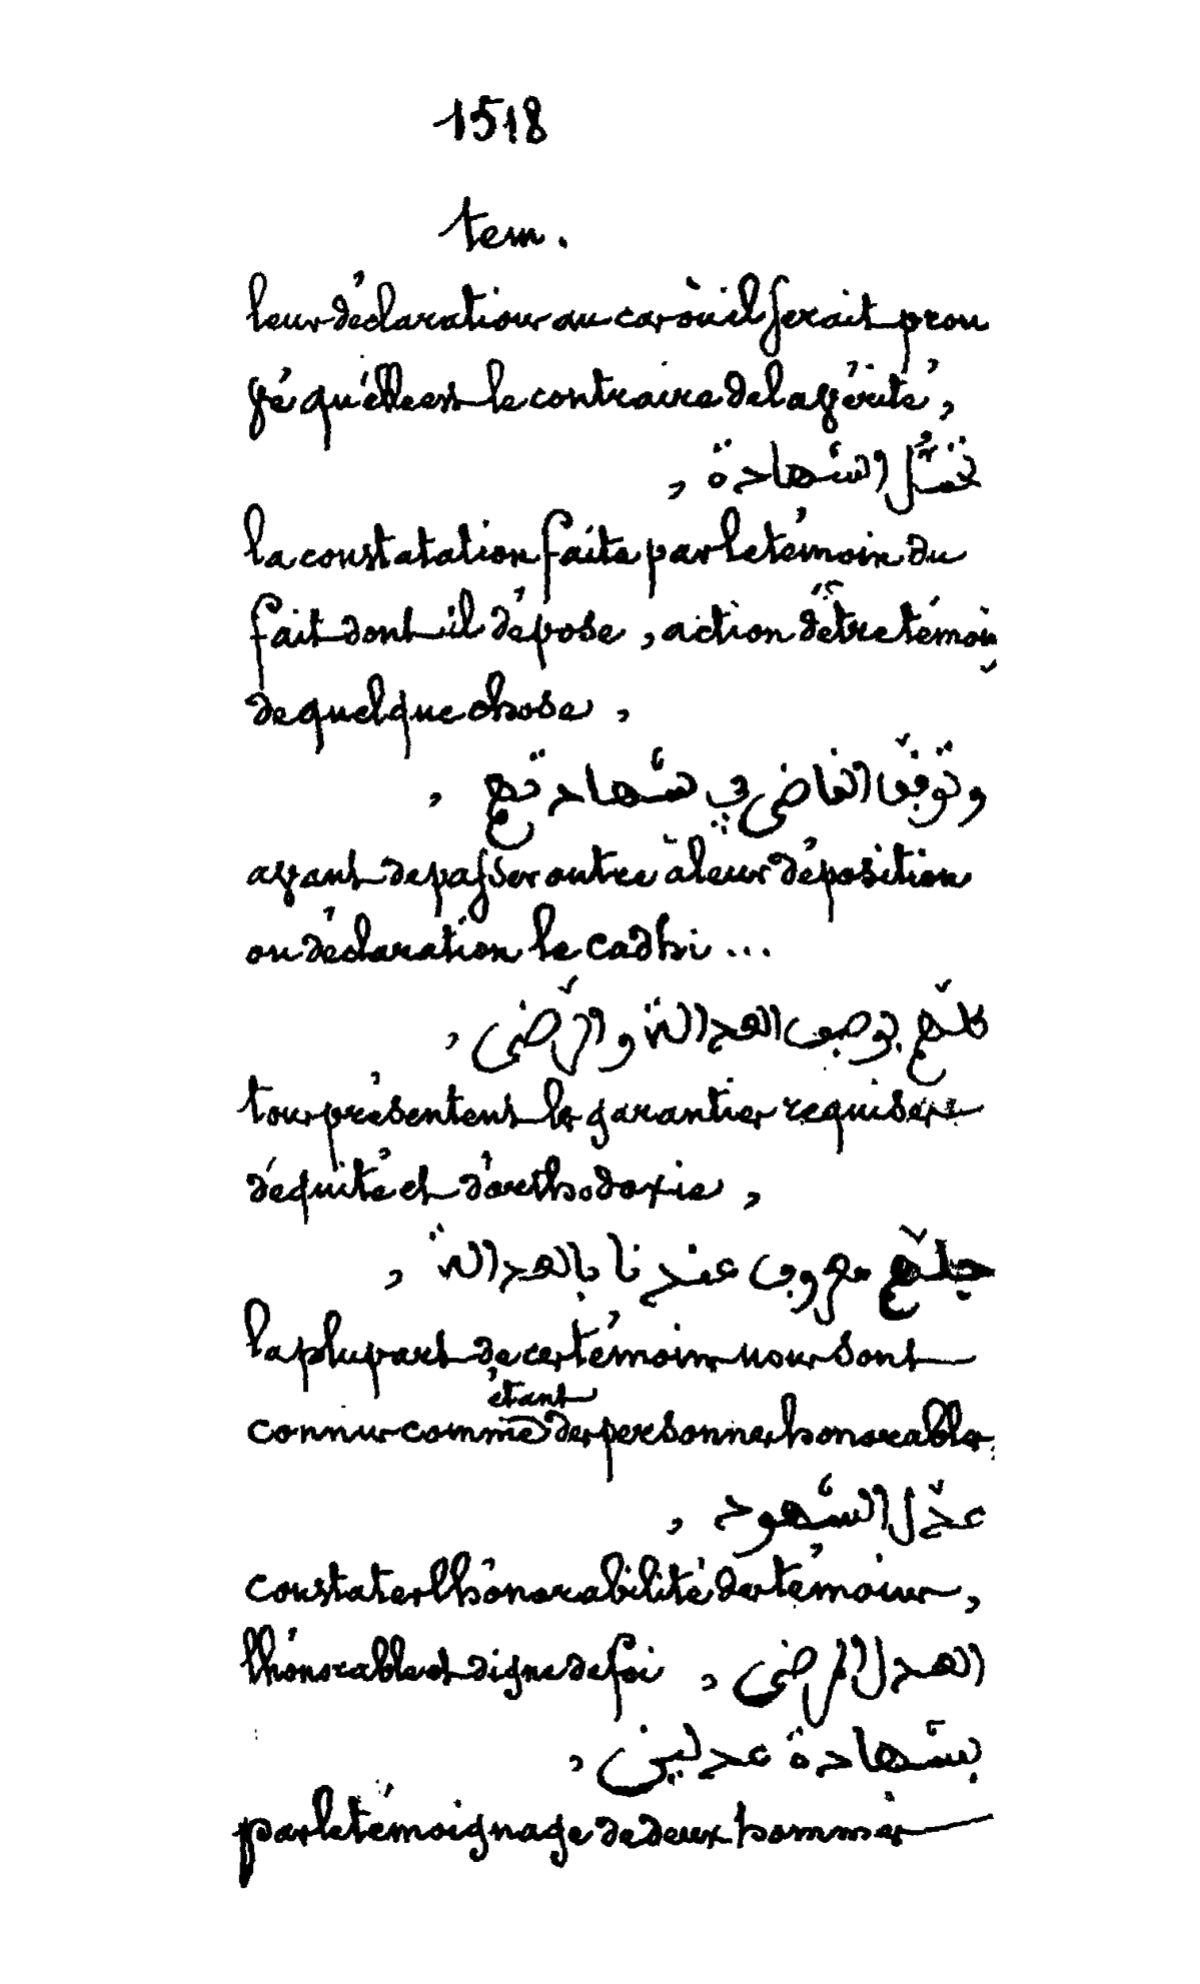 1518
tem.
leur déclaration au cas où il serait prou
vé qu'elle est le contraire de la vérité,
تحمّل الشهادة ,
la constatation faite par le témoin du
fait dont il dépose, action d'être témoin
de quelque chose,
وتوقّف القاضى في شهادتهم ,
avant de passer outre à leur déposition
ou déclaration le cadhi ...
كلّهم بوصف العدالة والرّضى ,
tous présentent les garanties requises
d'équité et d'orthodoxie,
جلّهم معروف عندنا بالعدالة ,
la plupart de ces témoins nous sont
connus comme étant des personnes honorables
عدّل الشهود ,
constater l'honorabilité des témoins,
العدل الرضى , l'honorable et digne de foi
بشهادة عدلين ,
par le témoignage de deux hommes